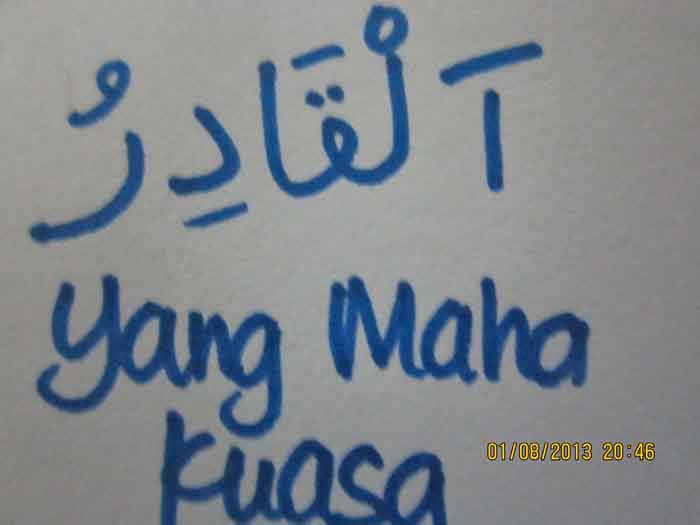 اَلْقَادِرُ
Yang Maha
Kuasa
01/08/2013 20:46